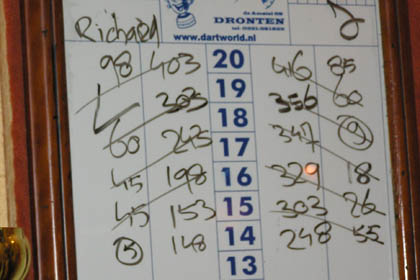 DRONTEN
www.dartworld.nl
Richard
98 403 20 416 85
305 19 356 60
18
60 245 17 347 9
45 198 16 329 18
45 153 15 303 26
5 148 14 248 55
13